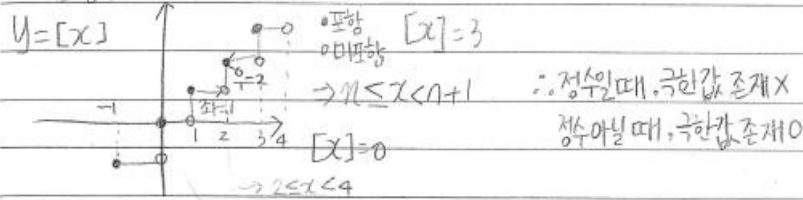 y=[x]
•포함
○미포함
[x]=3
→ n≤x<n+1
∴ 정수일 때, 극한값 존재 X
정수 아닐 때, 극한값 존재 O
우=2
좌=1
-1
1 2 3 4
[x]=0
→ 2≤x<4